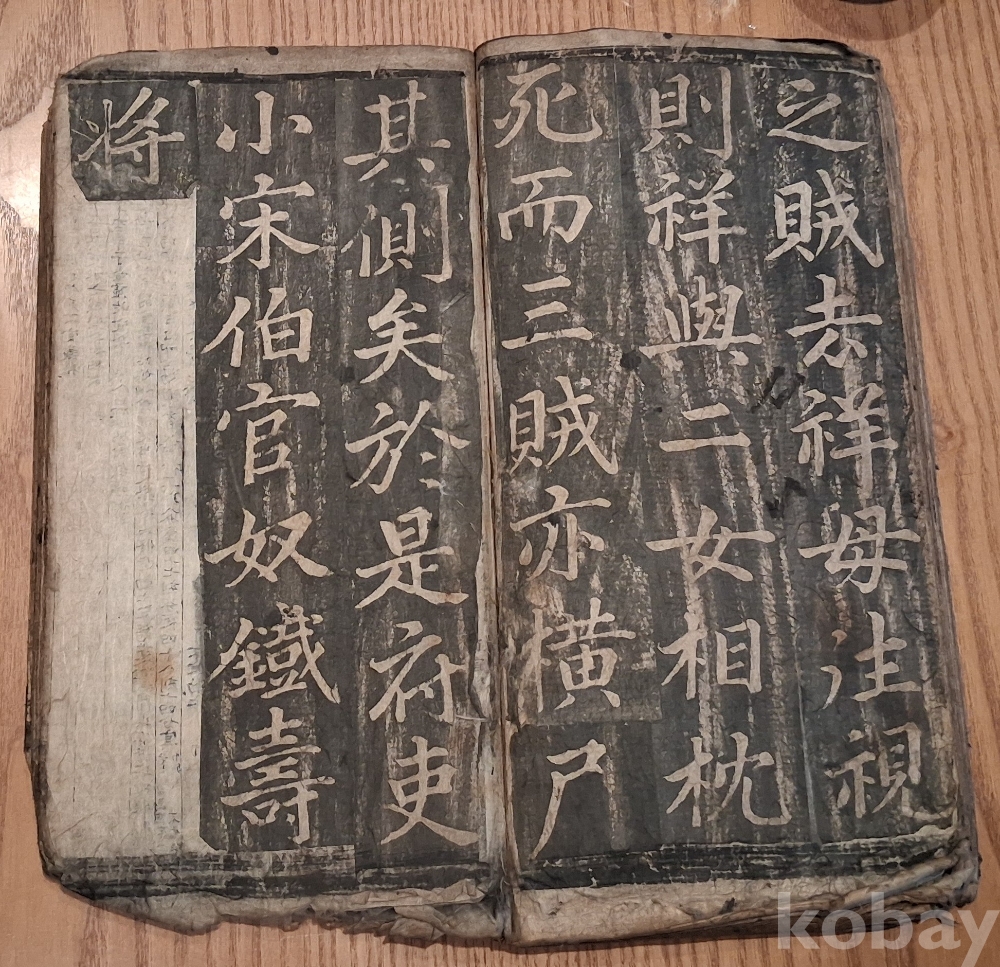 之賊去祥母往視
則祥與二女相枕
死而三賊亦橫尸
其側矣於是府吏
小宋伯官奴鐵壽
将
kobay